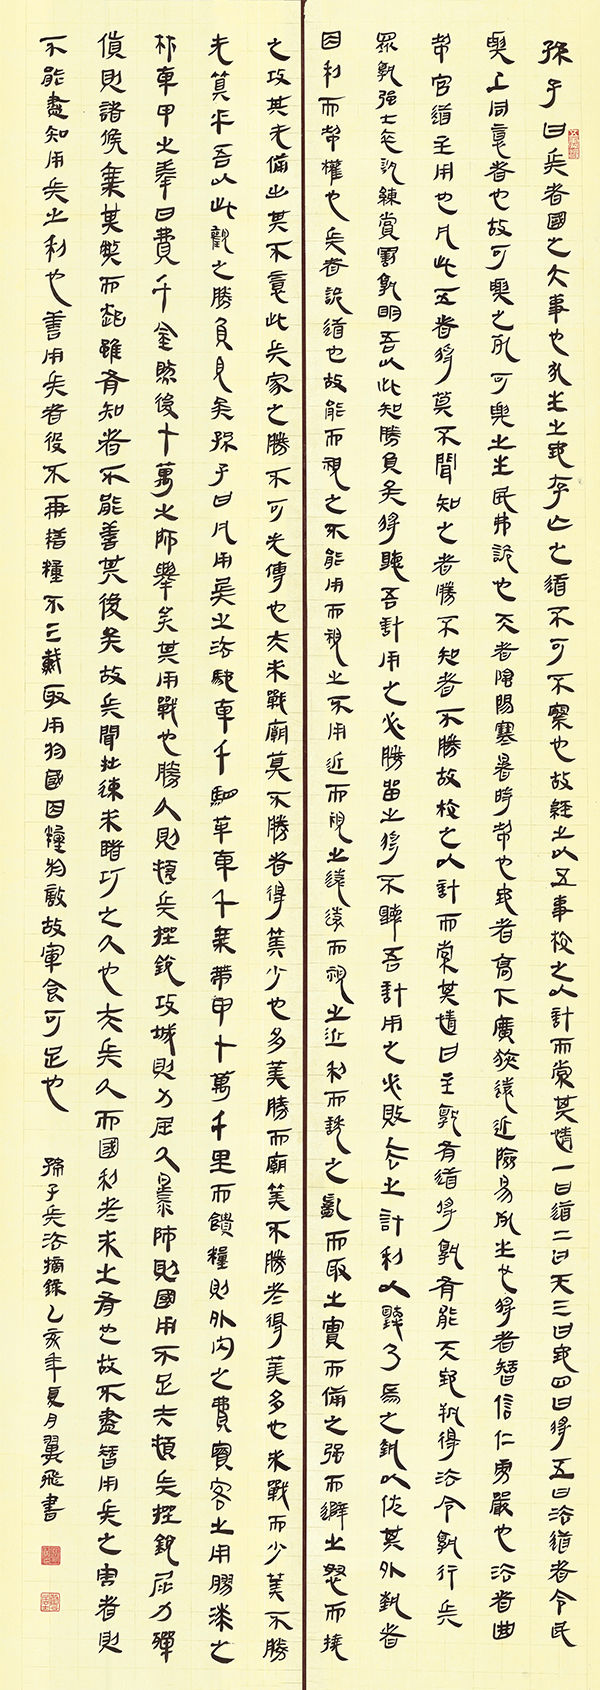 孫子曰兵者國之大事也死生之地存亡之道不可不察也故經之以五事校之以計而索其情一曰道二曰天三曰地四曰將五曰法道者令民
與上同意者也故可與之死可與之生民弗詭也天者陰陽寒暑時制也地者高下廣狹遠近險易死生也將者智信仁勇嚴也法者曲
制官道主用也凡此五者將莫不聞知之者勝不知者不勝故校之以計而索其情曰主孰有道將孰有能天地孰得法令孰行兵
眾孰強士卒孰練賞罰孰明吾以此知勝負矣將聽吾計用之必勝留之將不聽吾計用之必敗去之計利以聽乃為之埶以佐其外埶者
因利而制權也兵者詭道也故能而視之不能用而視之不用近而視之遠遠而視之近利而誘之亂而取之實而備之强而避之怒而撓
之攻其无備出其不意此兵家之勝不可先傳也夫未戰廟筭不勝者得筭少也多筭勝而廟筭不勝者得筭多也未戰而少筭不勝
无筭乎吾以此觀之勝負見矣孫子曰凡用兵之法馳車千駟革車千乘帶甲十萬千里而饋糧則外內之費賓客之用膠漆之
材車甲之奉日費千金然後十萬之師舉矣其用戰也勝久則頓兵挫銳攻城則力屈久暴師則國用不足夫頓兵挫銳屈力殫
貨則諸侯乘其弊而起雖有知者不能善其後矣故兵聞拙速未睹巧之久也夫兵久而國利者未之有也故不盡智用兵之害者則
不能盡知用兵之利也善用兵者役不再藉糧不三載取用於國因糧於敵故軍食可足也
孫子兵法摘錄乙亥年夏月翼飛書